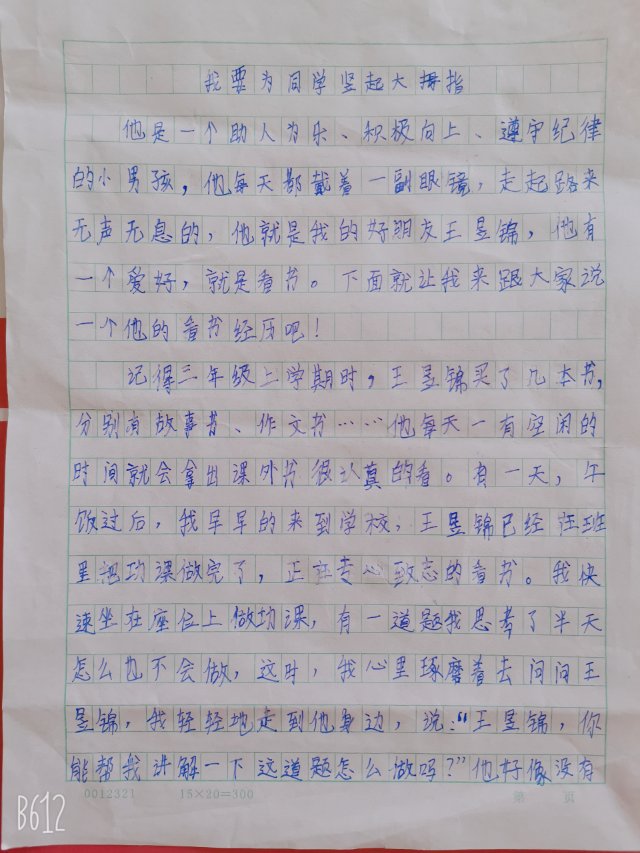 我要为同学竖起大拇指
他是一个助人为乐、积极向上、遵守纪律
的小男孩，他每天都戴着一副眼镜，走起路来
无声无息的，他就是我的好朋友王昱锦，他有
一个爱好，就是看书。下面就让我来跟大家说
一个他的看书经历吧！
记得三年级上学期时，王昱锦买了几本书，
分别有故事书、作文书……他每天一有空闲的
时间就会拿出课外书很认真的看。有一天，午
饭过后，我早早的来到学校，王昱锦已经在班
里把功课做完了，正在专心致志的看书。我快
速坐在座位上做功课，有一道题我思考了半天
怎么也不会做，这时，我心里琢磨着去问问王
昱锦，我轻轻地走到他身边，说："王昱锦，你
能帮我讲解一下这道题怎么做吗？"他好像没有
0012321 15×20=300 第 页
B612